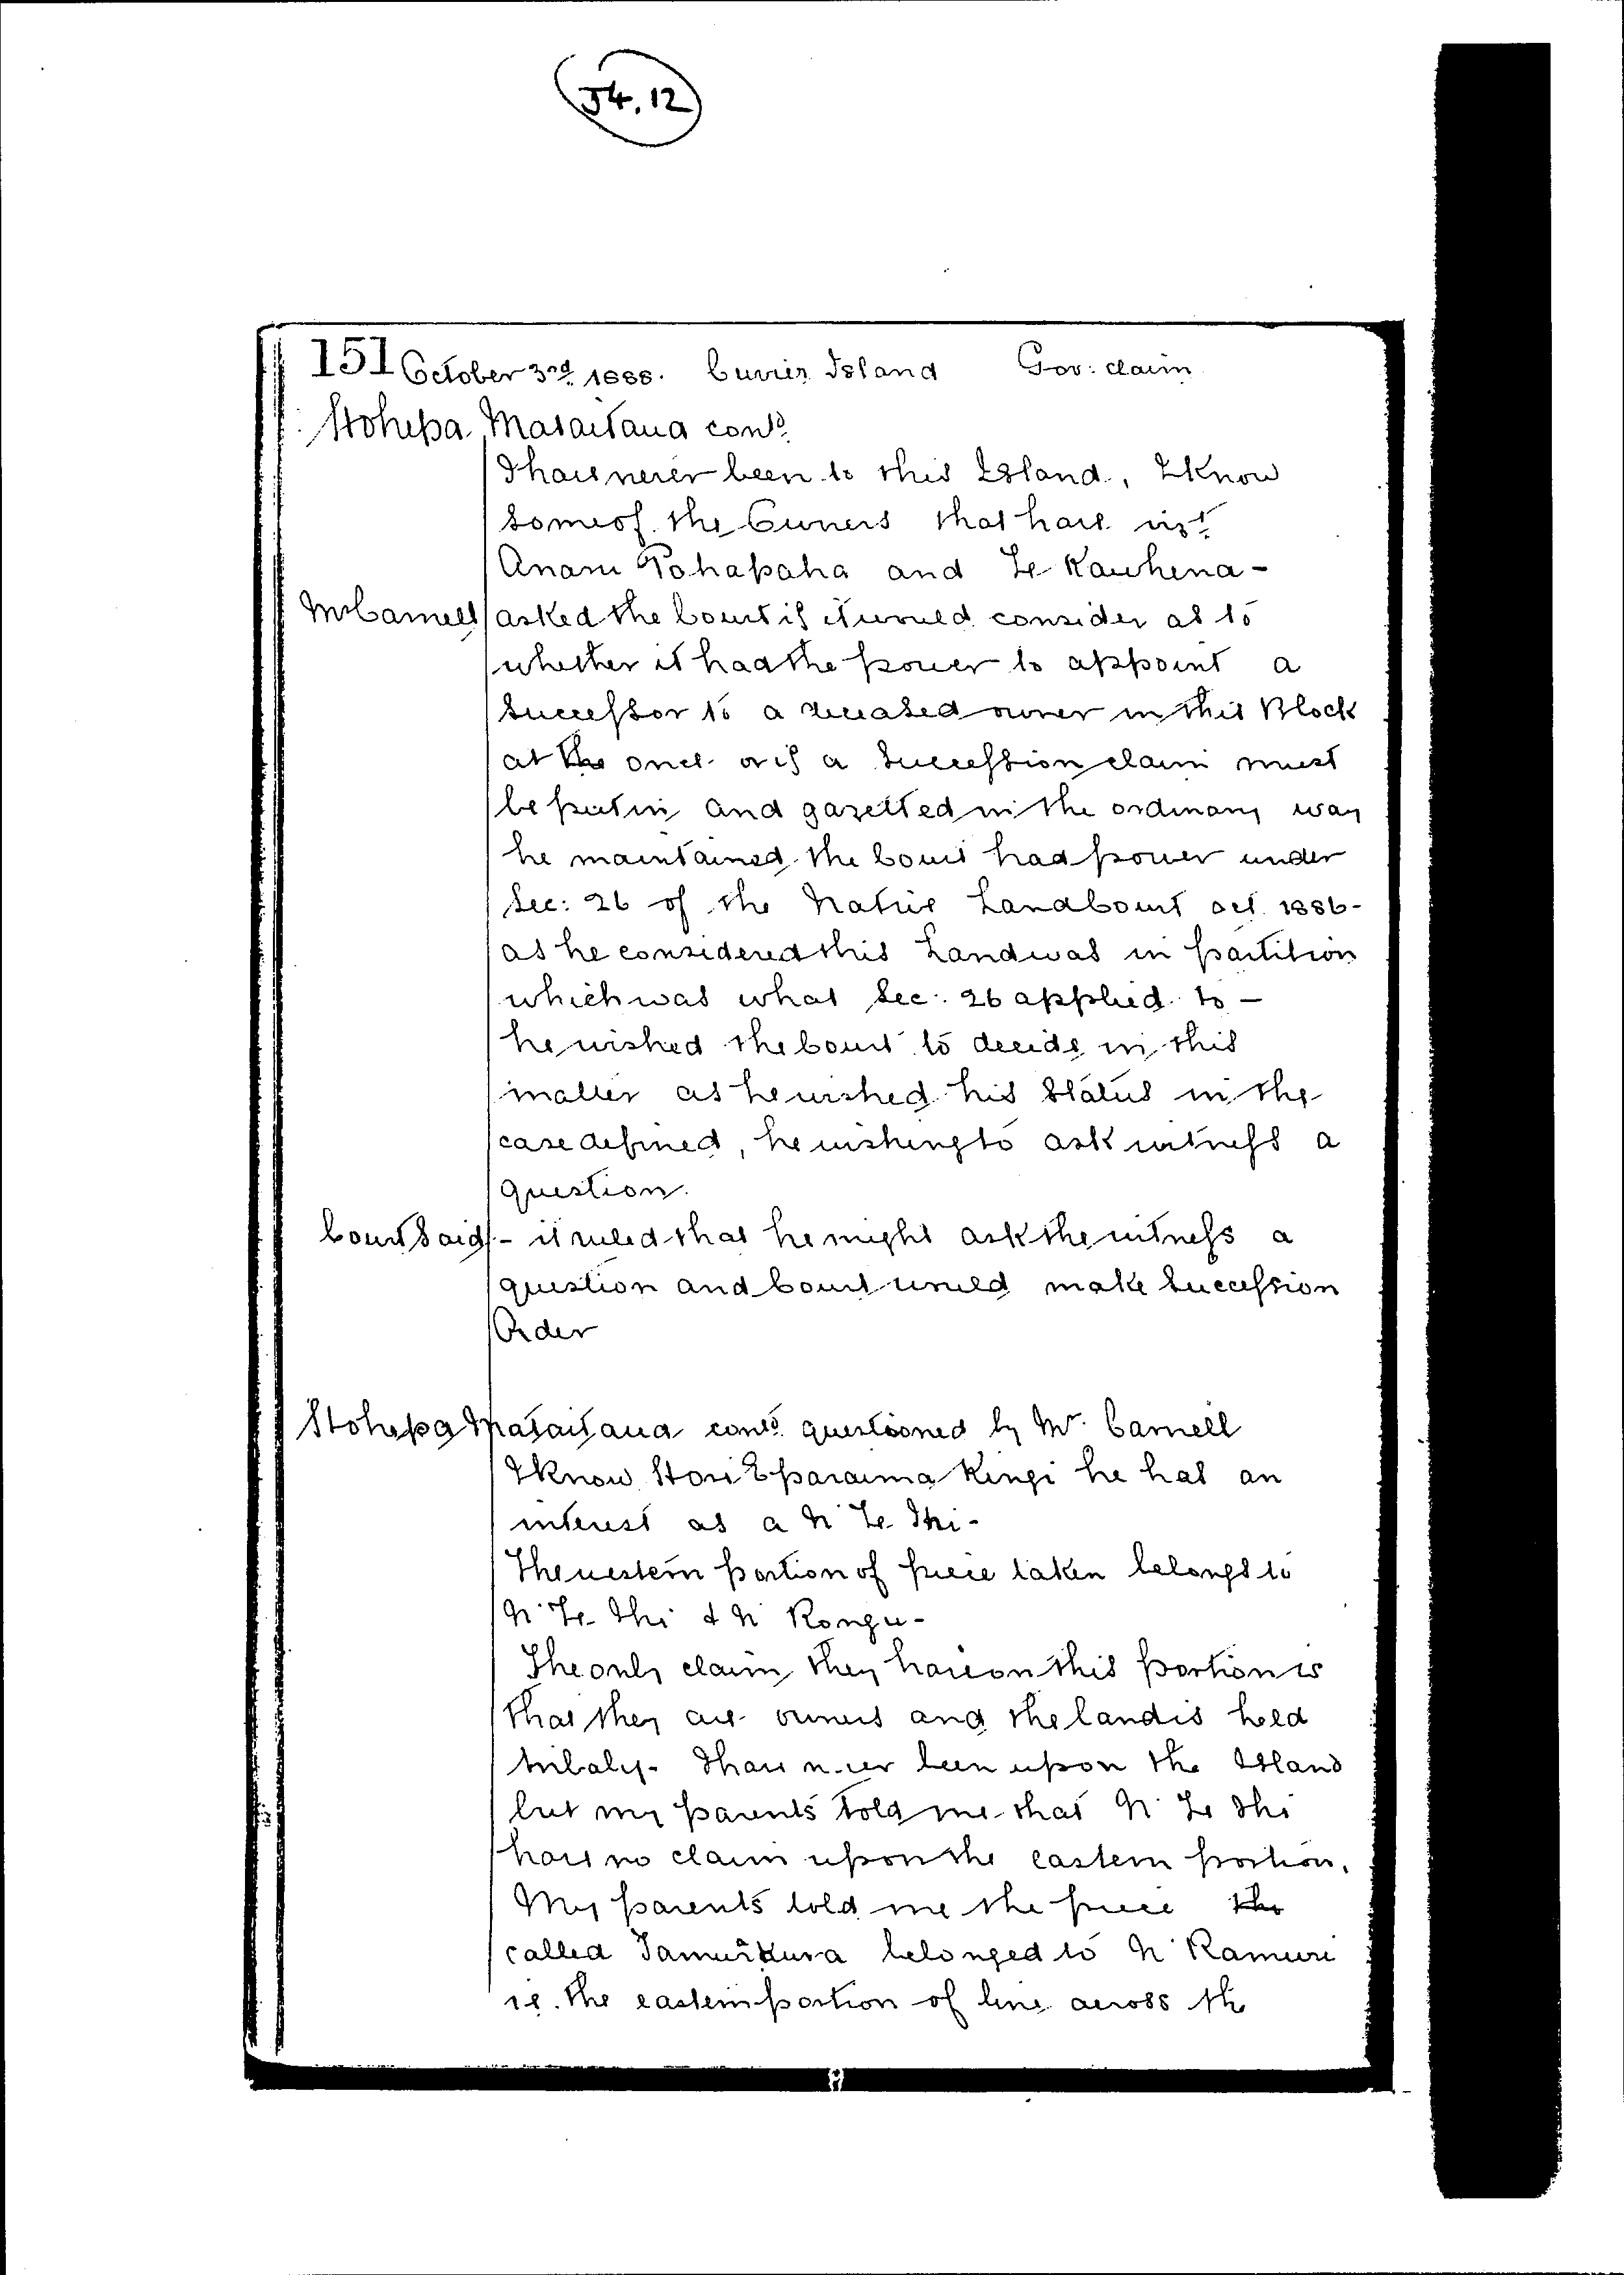 J4.12
151 October 3rd 1888. Cuvier Island Gov: claim
Hohepa Mataitaua contd
I have never been to this Island, I know
some of the Owners that have vizt
Anaru Pohapaha and Te Kawhena -
Mr Carnell asked the Court if it would consider as to
whether it had the power to appoint a
successor to a deceased owner in this Block
at the once or if a Succession claim must
be put in and gazetted in the ordinary way
he maintained the Court had power under
Sec: 26 of the Native Land Court act 1886 -
as he considered this Land was in partition
which was what Sec: 26 applied to -
he wished the Court to decide in this
matter as he wished his Status in the
case defined, he wishing to ask witness a
question.
Court Said - it ruled that he might ask the witness a
question and Court would make Succession
Order
Hohepa Mataitaua contd questioned by Mr. Carnell
I know Hori Eparaima Kingi he has an
interest as a N' Te Ihi -
The western portion of piece taken belongs to
N' Te Ihi & N' Rongu -
The only claim they have on this portion is
that they are owners and the land is held
tribaly - I have never been upon the Island
but my parents told me that N' Te Ihi
have no claim upon the eastern portion.
My parents told me the piece the
called belonged to N' Ramuri
i.e. the eastern portion of line across the